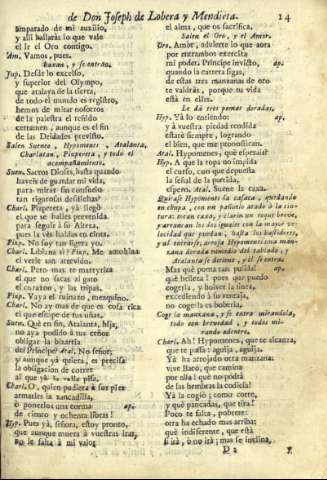 de Don Joseph de Lobera y Mendieta. 14
amparado de mi auxilio,
y alli hallarás lo que vale
el Ir el Oro contigo.
Am. Vamos, pues.
Baxan, y se entran.
Jup. Desde lo excelso,
y superior del Olympo,
que atalaya de la tierra,
de todo el mundo es registro,
hemos de mirar nosotros
de la palestra el reñido
certamen, aunque es el fin
de las Deidades previsto.
Salen Sueno, Hypomene, Atalanta,
Charlatan, Pispereta, y todo el
acompañamiento.
Suen. Sacros Dioses, hasta quando
haveis de guardar mi vida,
para mirar sin consuelo
tan rigurosos desdichas?
Charl. Pispereta, ya llegò
el que se halles prevenida
para seguir à su Alteza,
pues la vès hablas en cinta.
Pisp. No soy tan ligera yo.
Charl. Lebrina eres Pisp. Me amohina
el verle tan atrevido.
Charl. Pero mas te maravilla
el que no sacas al gato
el corazon, y las tripas.
Pisp. Vaya el ruinazo, mezquino.
Charl. No ay mas de que es cosa rica
el que estupe de tus uñas.
Suen. Què en fin, Atalanta, hija,
no aya podido à tus ceños
obligar la bizarria
del Principe? Atal. No señor;
y aunque yà quiera, es precisa
la obligacion de correr
al que yà la valla pisa.
Charl. O, quien pudiera à sus pies
armarles la zancadilla,
ò ponerlos una corma ap.
de ciento y ochenta libras!
Hyp. Pues yà, señora, estoy pronto,
que aunque muera à vuestras iras,
no le falta à mi valor
el alma, que os sacrifica.
Salen el Oro, y el Amor.
Oro. Amor, advierte lo que aora
por entrambos exercita
mi poder. Principe invicto, ap.
quando la carrera sigas,
de estas tres manzanas de oro
te valdràs, porque tu vida
està en ellas.
Le dà tres pomas doradas.
Hyp. Yà lo entiendo: ap.
y à vuestra piedad rendida
estarè siempre, logrando
el bien, que me pronosticas.
Atal. Hypomenes, què esperais?
Hyp. A que la ropa no impida
el curso, con que dispuesta
la señal de la partida,
espero. Atal. Suene la caxa.
Quitase Hypomenes la casaca, quedando
en chupa, con un pañuelo atado à la cintura:
tocan caxa, y clarin un toque breve,
y arrancan los dos iguales con la mayor velocidad
que puedan, hasta los bastidores,
y al entrarse, arroja Hypomenes una manzana
dorada enmedio del tablado, y
Atalanta se detiene, y èl se entra.
Mas què poma tan pulida! ap.
què belleza! pues que puedo
cogerla, y bolver la linea,
excediendo à su ventaja,
no cogerla es boberia.
Coge la manzana, y se entra mirandola,
todo con brevedad, y todos mirando
adentro.
Charl. Ah! Hypomenes, que te alcanza;
que te passa: aguija, aguija.
Yà ha arrojado otra manzana:
vive Baco, que camina
por ella! què no podrà
de las hembras la codicia!
Yà la cogiò; como corre,
y què pancadas, que tira!
Poco te falta, pobrete:
otra ha echado mas arriba:
què indiferente, que està
si irà, ò no irà; mas se inclina,
D 2 y